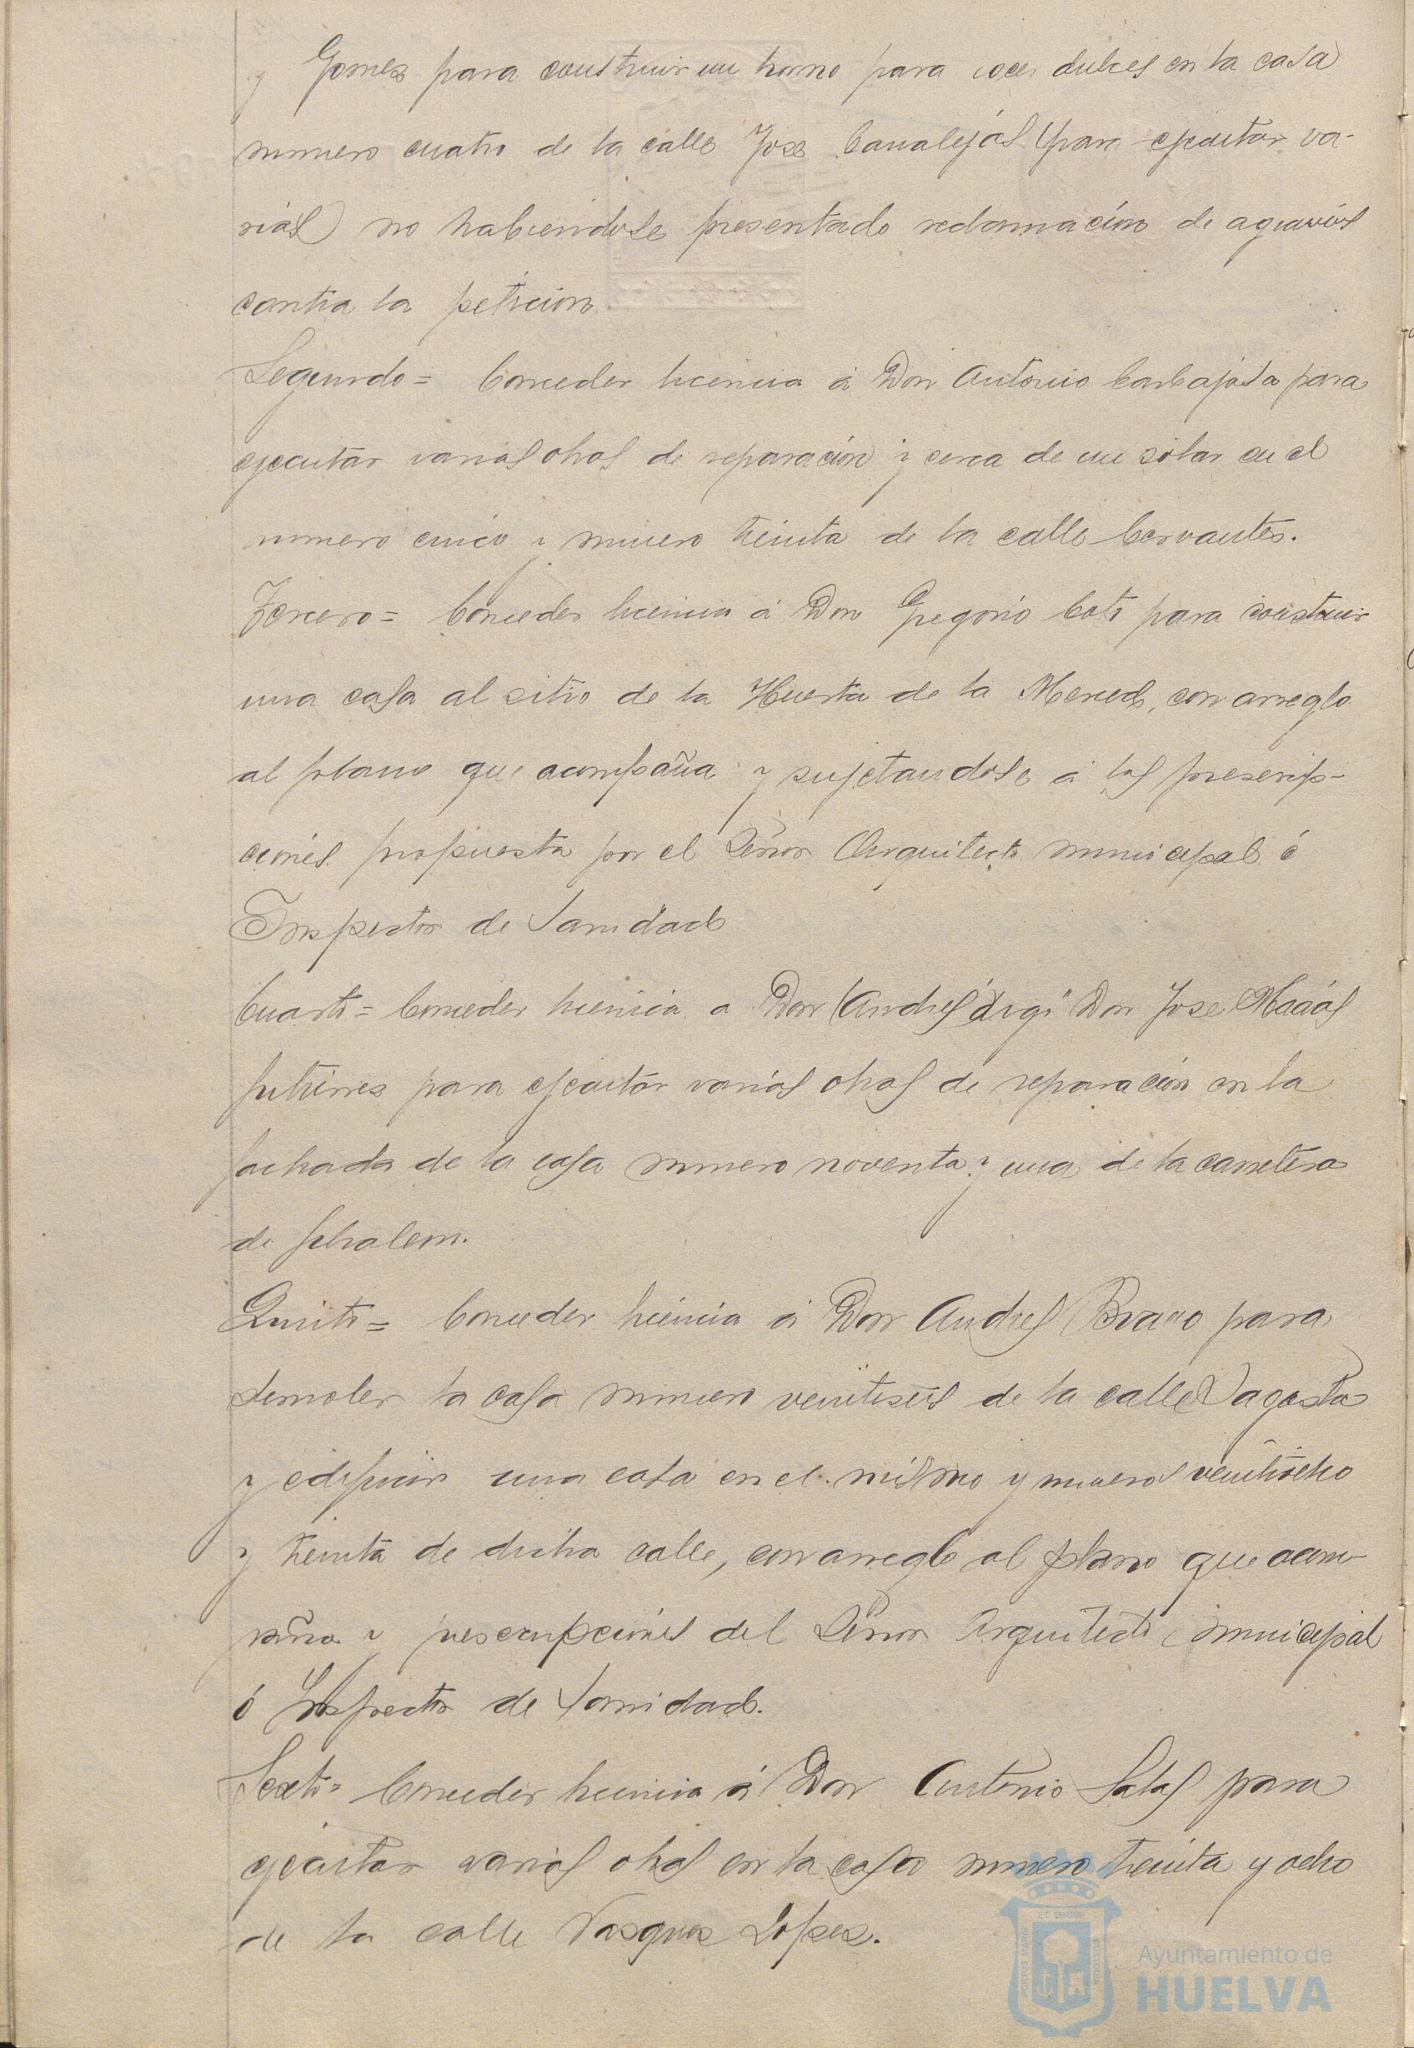 y Gomez para construir un horno para cocer dulces en la casa
numero cuatro de la calle Jose Canalejas (para ejecutar va-
rias) no habiendose presentado reclamación de agravios
contra la petición.
Segundo = Conceder licencia á Don Antonio Carbajosa para
ejecutar varias obras de reparación y cerca de un solar en el
numero cinco y numero treinta de la calle Cervantes.
Tercero = Conceder licencia á Don Gregorio Coto para construir
una casa al sitio de la Huerta de la Merced, con arreglo
al plano que acompaña y sujetandose á las prescrip-
ciones propuesta por el Señor Arquitecto municipal é
Inspector de Sanidad
Cuarto = Conceder licencia a Don (Andres digo) Don Jose Macias
para ejecutar varias obras de reparación en la
fachada de la casa numero noventa y una de la carretera
de
Quinto = Conceder licencia á Don Andres Bravo para
demoler la casa numero veintiseis de la calle Sagasta
y edificar una casa en el mismo y numeros veintiocho
y treinta de dicha calle, con arreglo al plano que acom-
paña y prescripciones del Señor Arquitecto municipal
é Inspector de Sanidad.
Sexto = Conceder licencia á Don Antonio Salas para
ejecutar varias obras en la casa numero treinta y ocho
de la calle Vasquez Lopez.
Ayuntamiento de
HUELVA